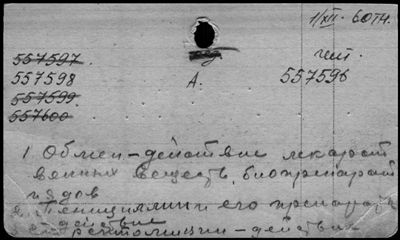 1/XII - 60 тч.
557597.
557598 А. 557596
557599
557600
1 Обмен - действие лекарст
венных веществ, биопрепарат
и ядов
Пенициллин и его препараты
- действие
- действие